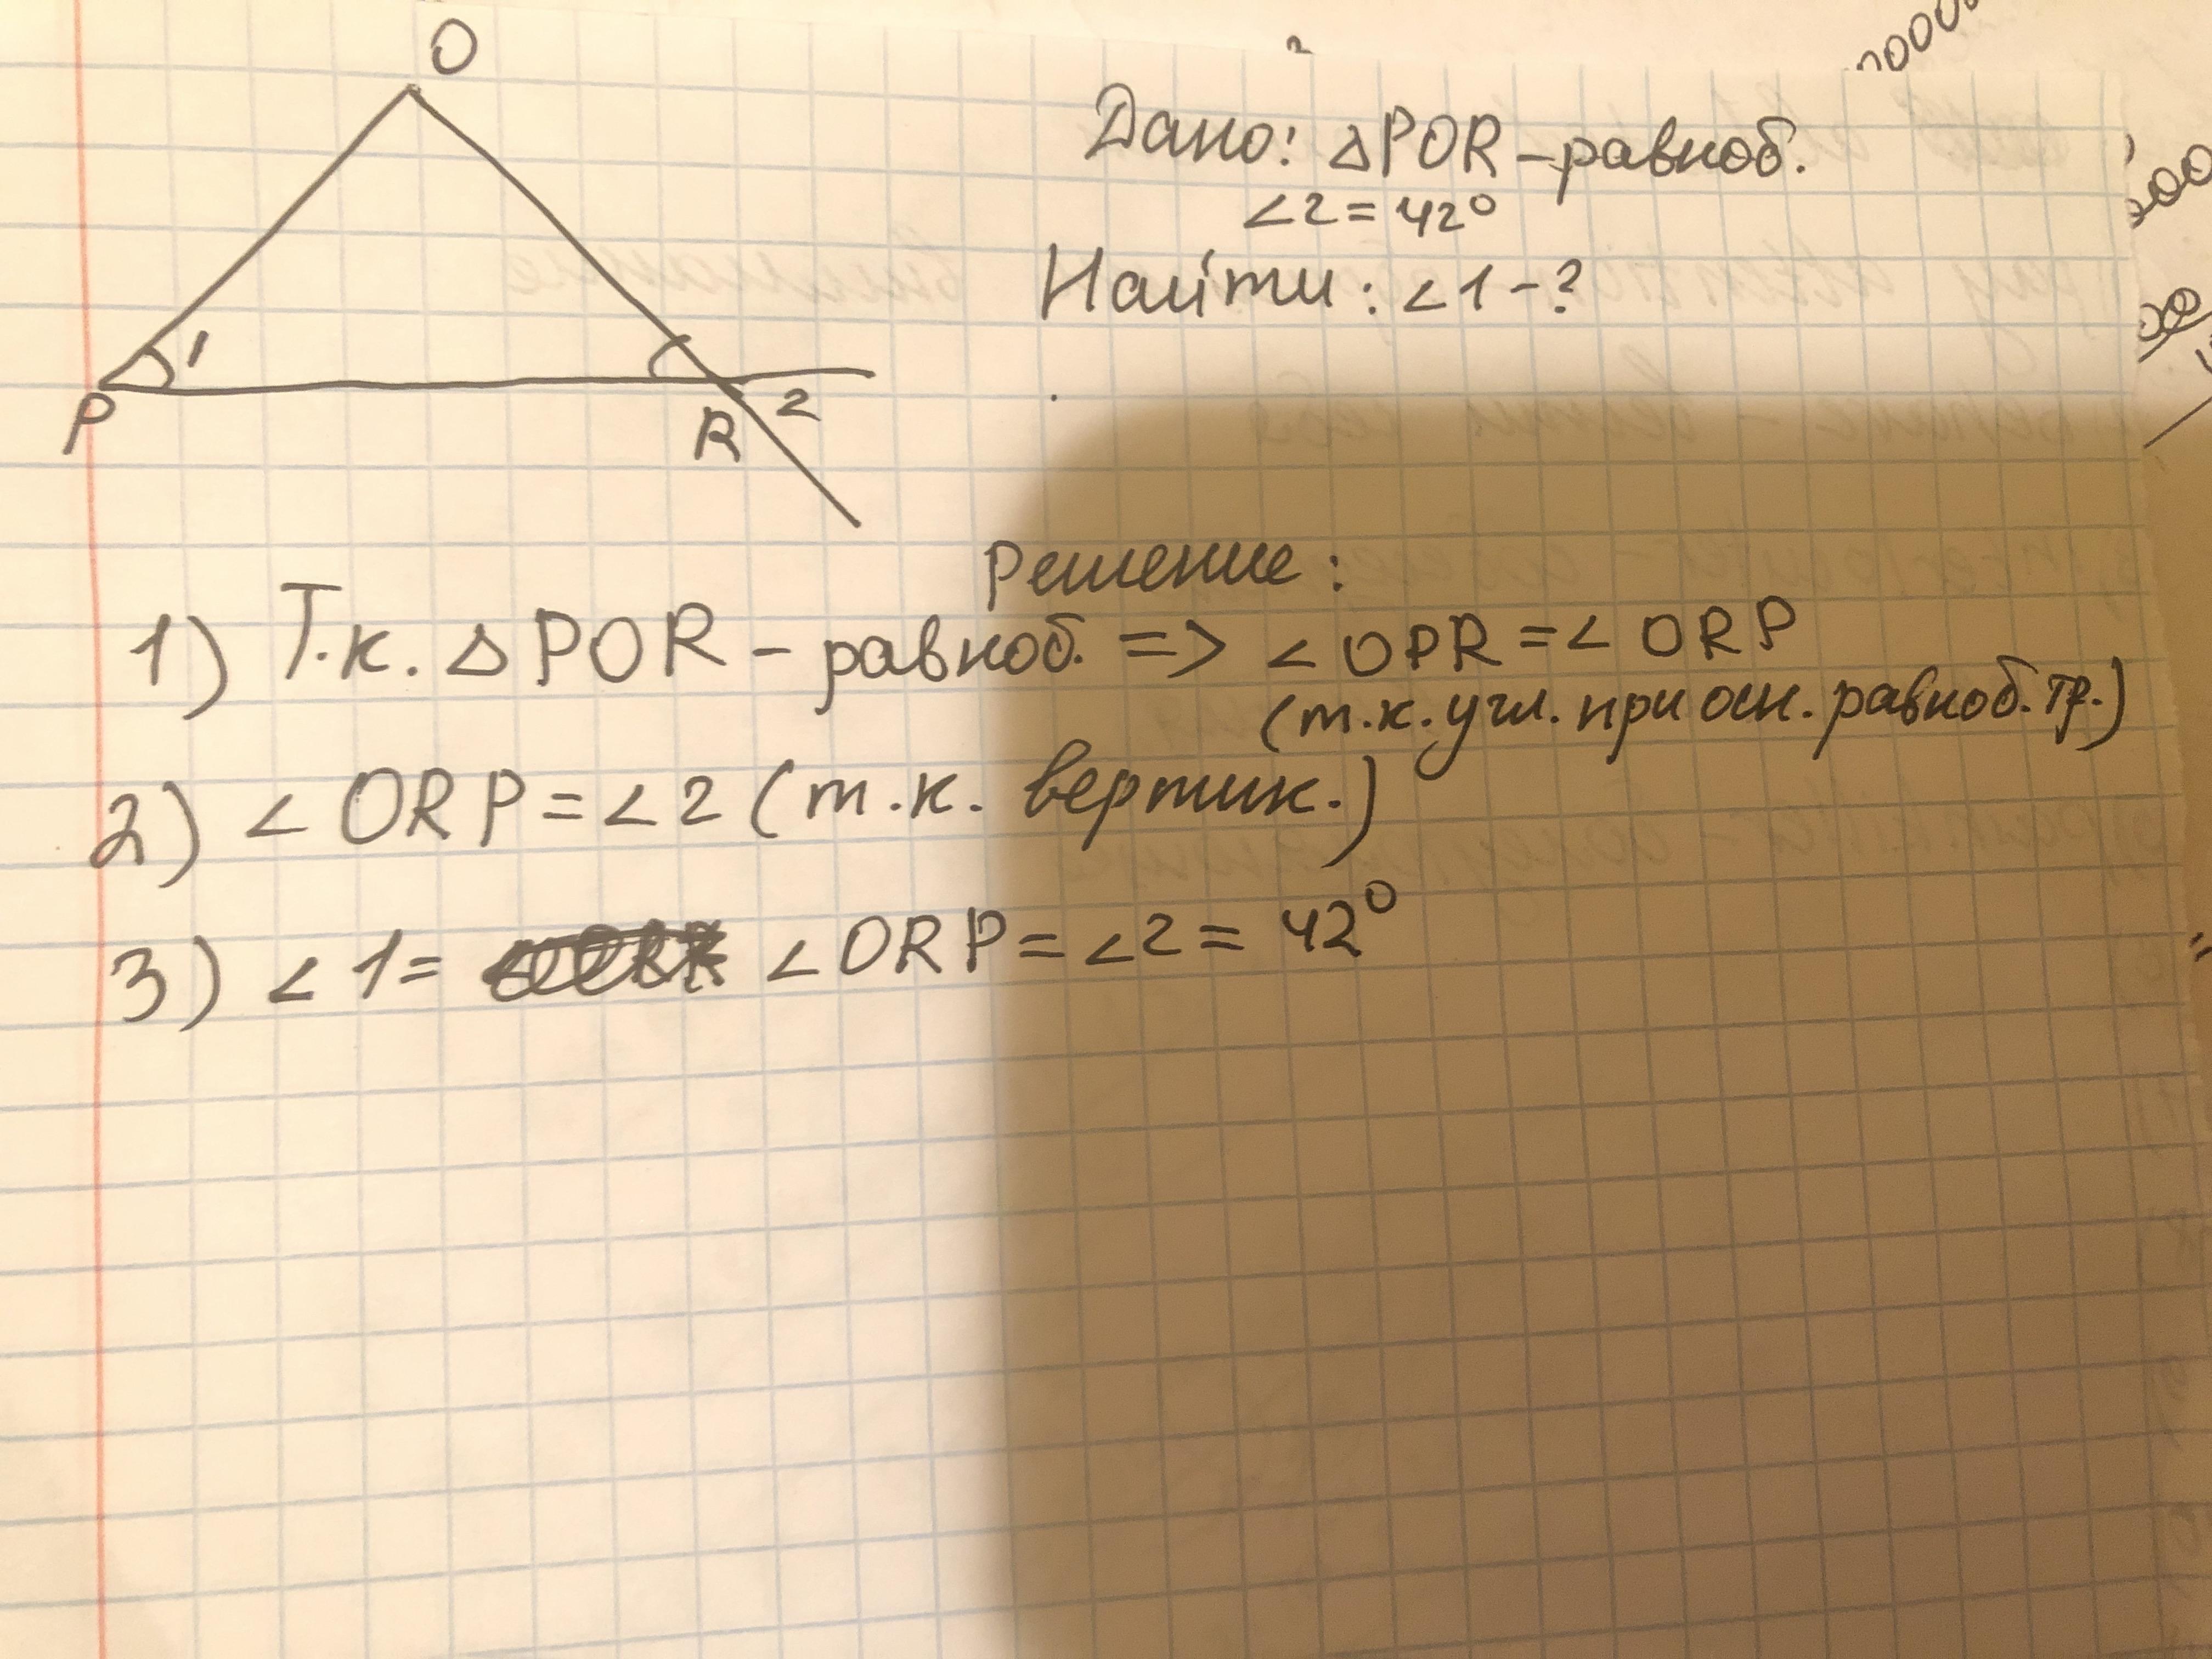 O
Дано: △POR – равноб.
∠2 = 42°
Найти: ∠1 – ?
1
P
R
2
Решение:
1) Т.к. △POR – равноб. => ∠OPR = ∠ORP
(т.к. угл. при осн. равноб. тр.)
2) ∠ORP = ∠2 (т.к. вертик.)
3) ∠1 = ∠ORP = ∠2 = 42°